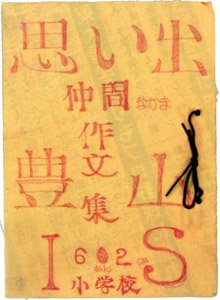 思い出
仲間 なかま
作文集
豊山
I S
6 2
ねん
小学校